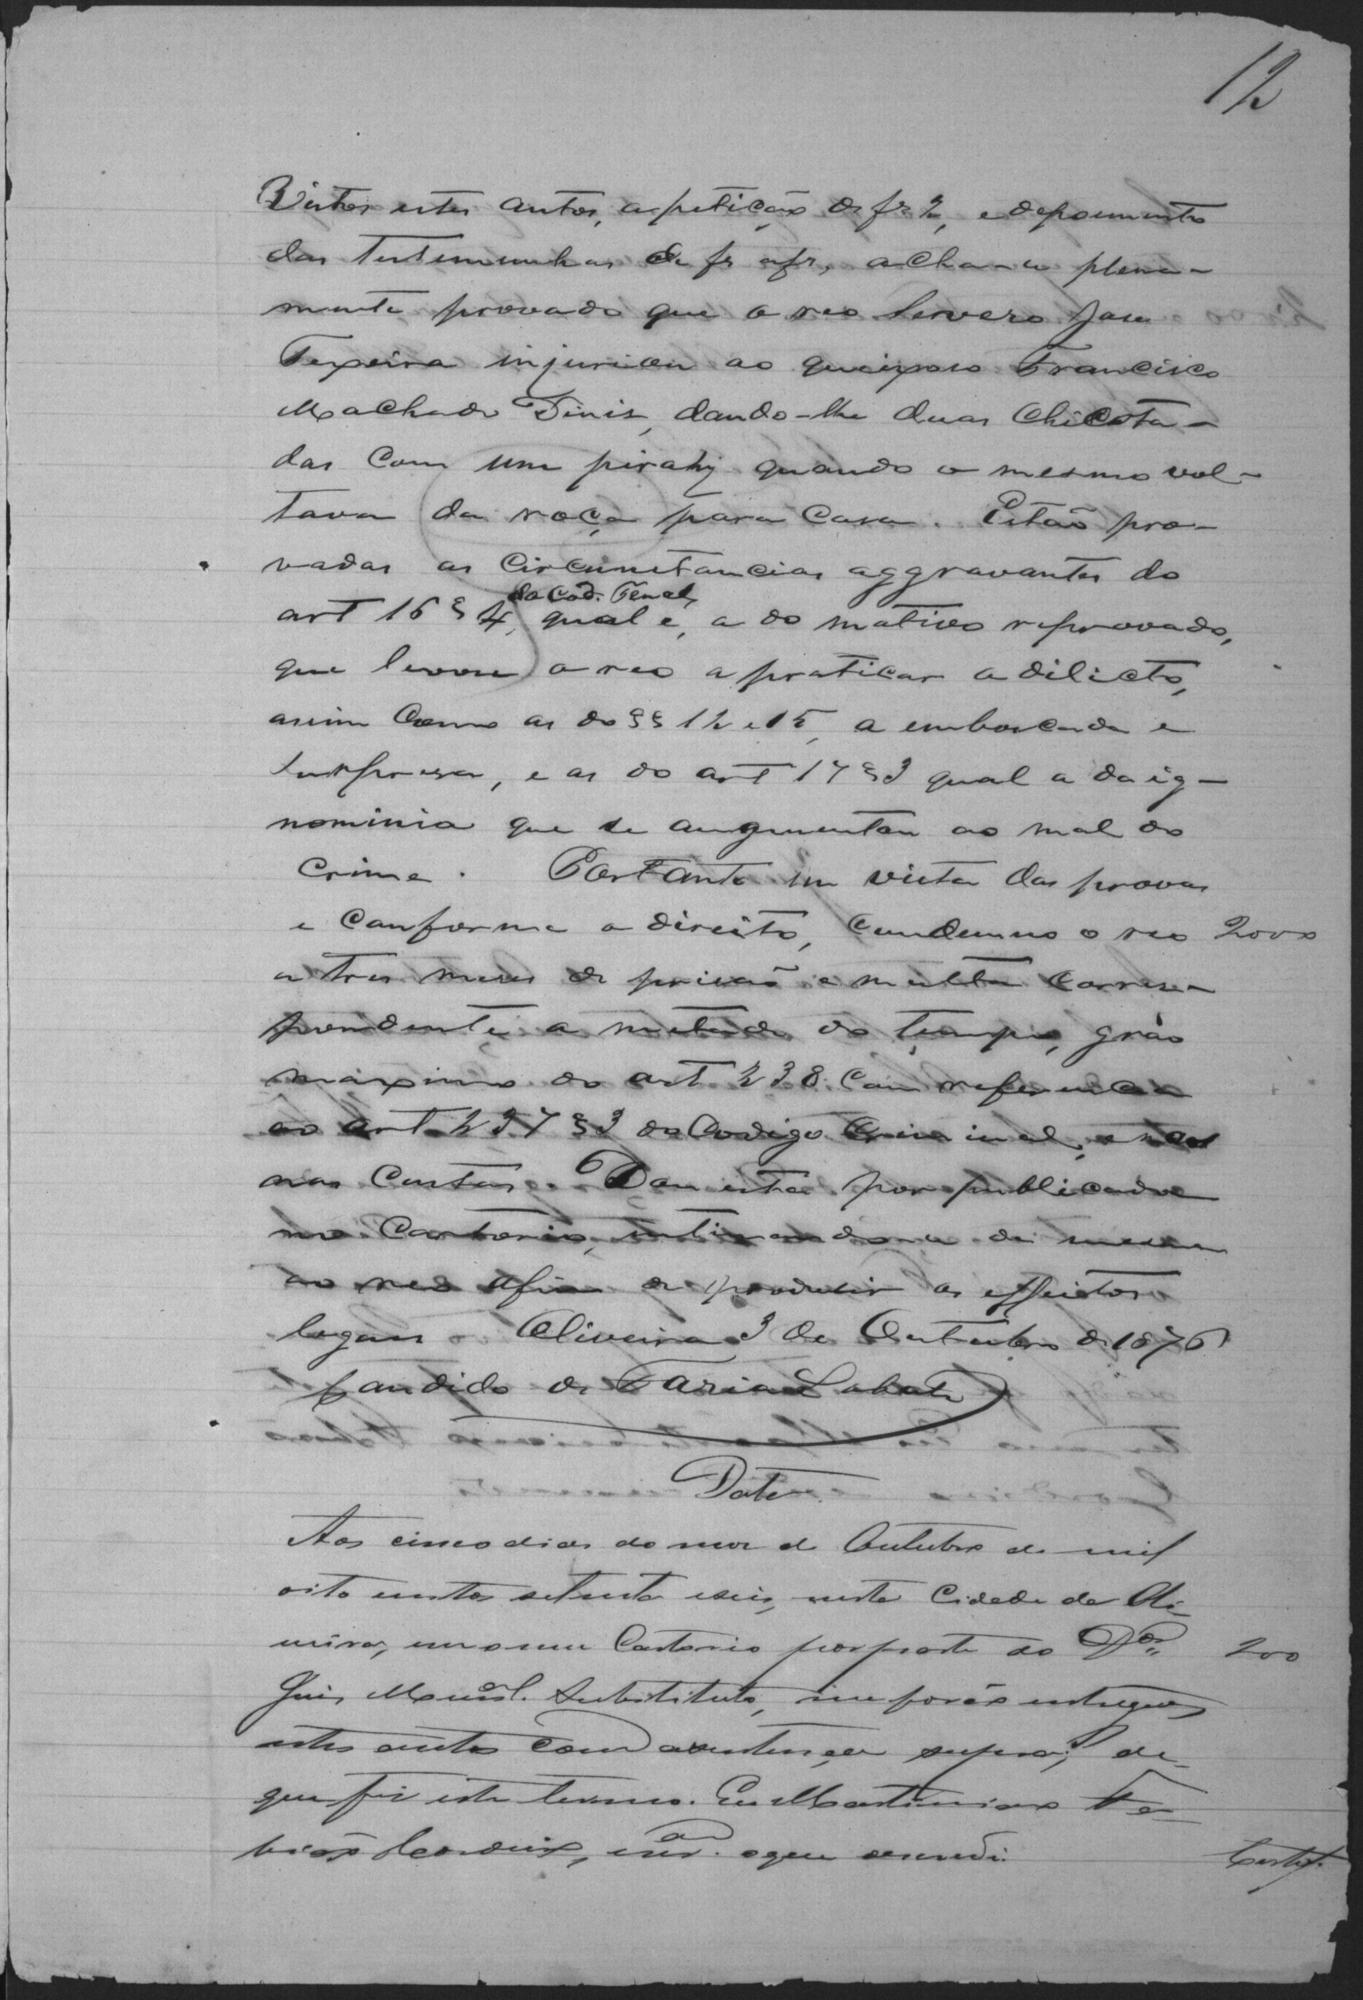 12
Vistos estes autos, a petição de fs 2, e depoimento
das testemunhas de fs a fs, acha-se plena-
mente provado que o reo Severo José
Texeira injuriou ao queixoso Francisco
Machado Diniz, dando-lhe duas chicota-
das com um pirahy quando o mesmo vol-
tava da roça para casa. Estão pro-
vadas as circunstancias aggravantes do
art 16 § 4, do Cod. Penal, qual é, a do motivo reprovado,
que levou o reo a praticar o dilicto,
assim como as do §§ 12 e 15, a emboscada e
surpresa, e as do art 17 § 3 qual a da ig-
nominia que se augmentou ao mal do
crime. Portanto em vista das provas
e conforme o direito, condemno o reo 2000
a tres meses de prisão e multa corres-
pondente a metade do tempo, gráo
maximo do art 238 com referencia
ao art 237 § 3 do Codigo Criminal, e
nas custas. Dou esta por publicada
no Cartorio, intimando-se da mesma
ao reo afim de produzir os effeitos
legaes. Oliveira 3 de Outubro de 1876
Candido de Faria Lobato
Data
Aos cinco dias do mez de Outubro de mil
oito centos setenta e seis, nesta Cidade de Oli-
veira, em o meu Cartorio por parte do Dor. 200
Juis Munal. Substituto, me forão entregues
estes autos com a sentença supra; de
que fiz este termo. Eu Martiniano
, esam. o que escrevi.
Certif.